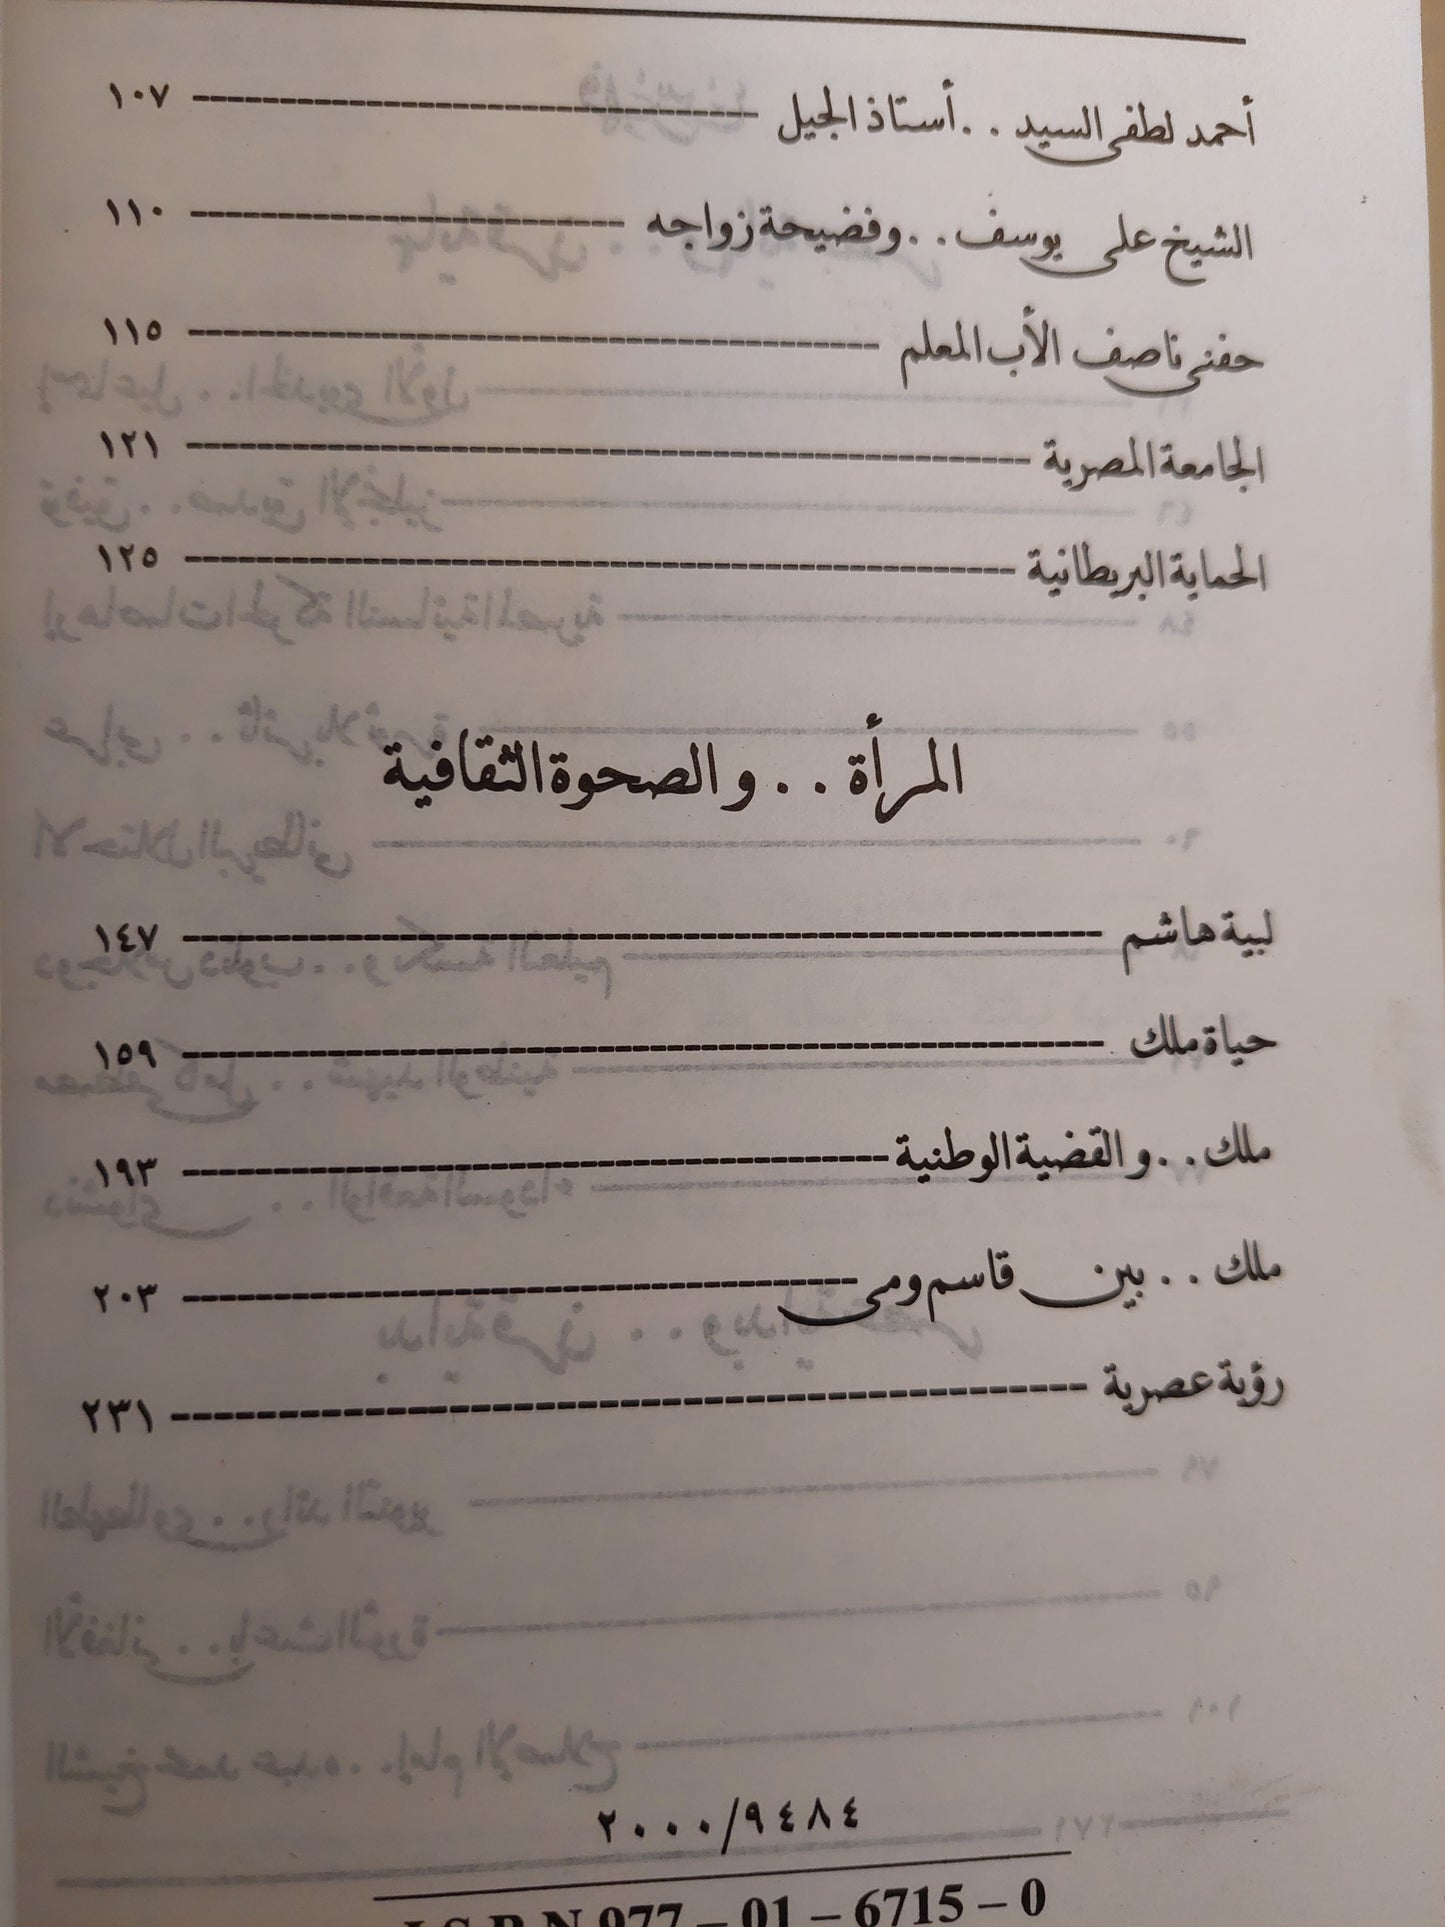 أحمد لطفى السيد . . أستاذ الجيل ١٠٧
الشيخ على يوسف . . وفضيحة زواجه ١١٠
حفنى ناصف الأب المعلم ١١٥
الجامعة المصرية ١٢١
الحماية البريطانية ١٢٥
المرأة . . والصحوة الثقافية
لبيبة هاشم ١٤٧
حياة ملك ١٥٩
ملك . . والقضية الوطنية ١٩٣
ملك . . بين قاسم ومى ٢٠٣
رؤية عصرية ٢٣١
٢٠٠٠/٩٤٨٤
I.S.B.N 977 – 01 – 6715 – 0